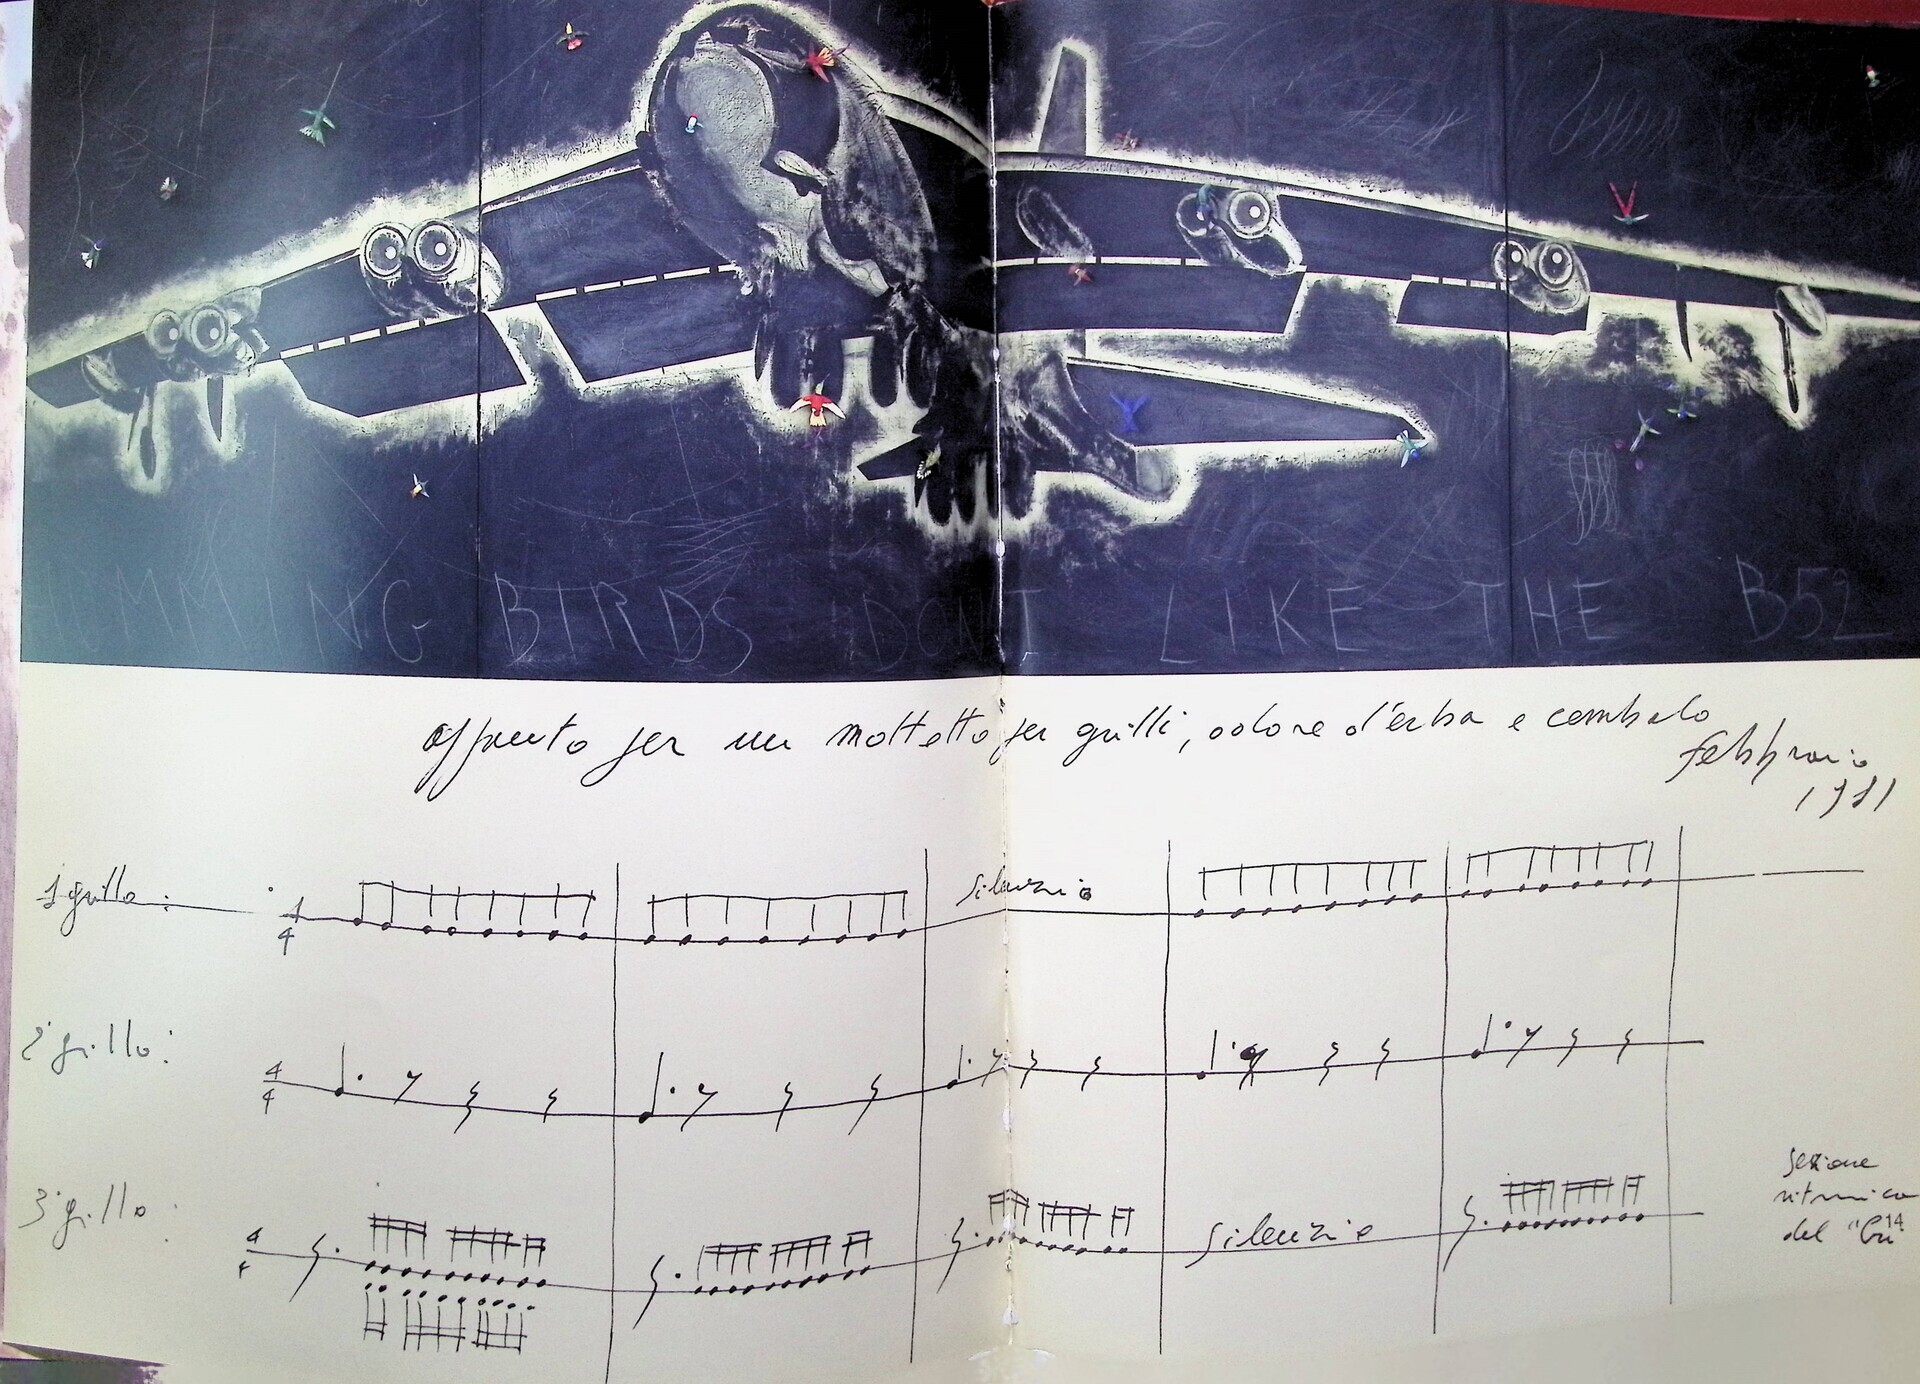 HUMMING BIRDS DON'T LIKE THE B52
appunto per un mottetto per grilli, odore d'erba e cembalo
febbraio
1981
1 grillo:
4
4
silenzio
2° grillo:
4
4
3° grillo:
4
4
silenzio
sezione
ritmica
del "Cri"
14